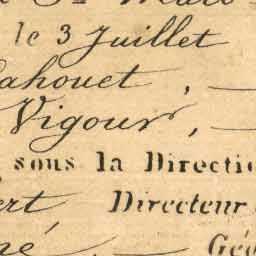 le 3 Juillet
ahouet, —
Vigour, —
, sous la Directi
ert Directeur
né, — Géo